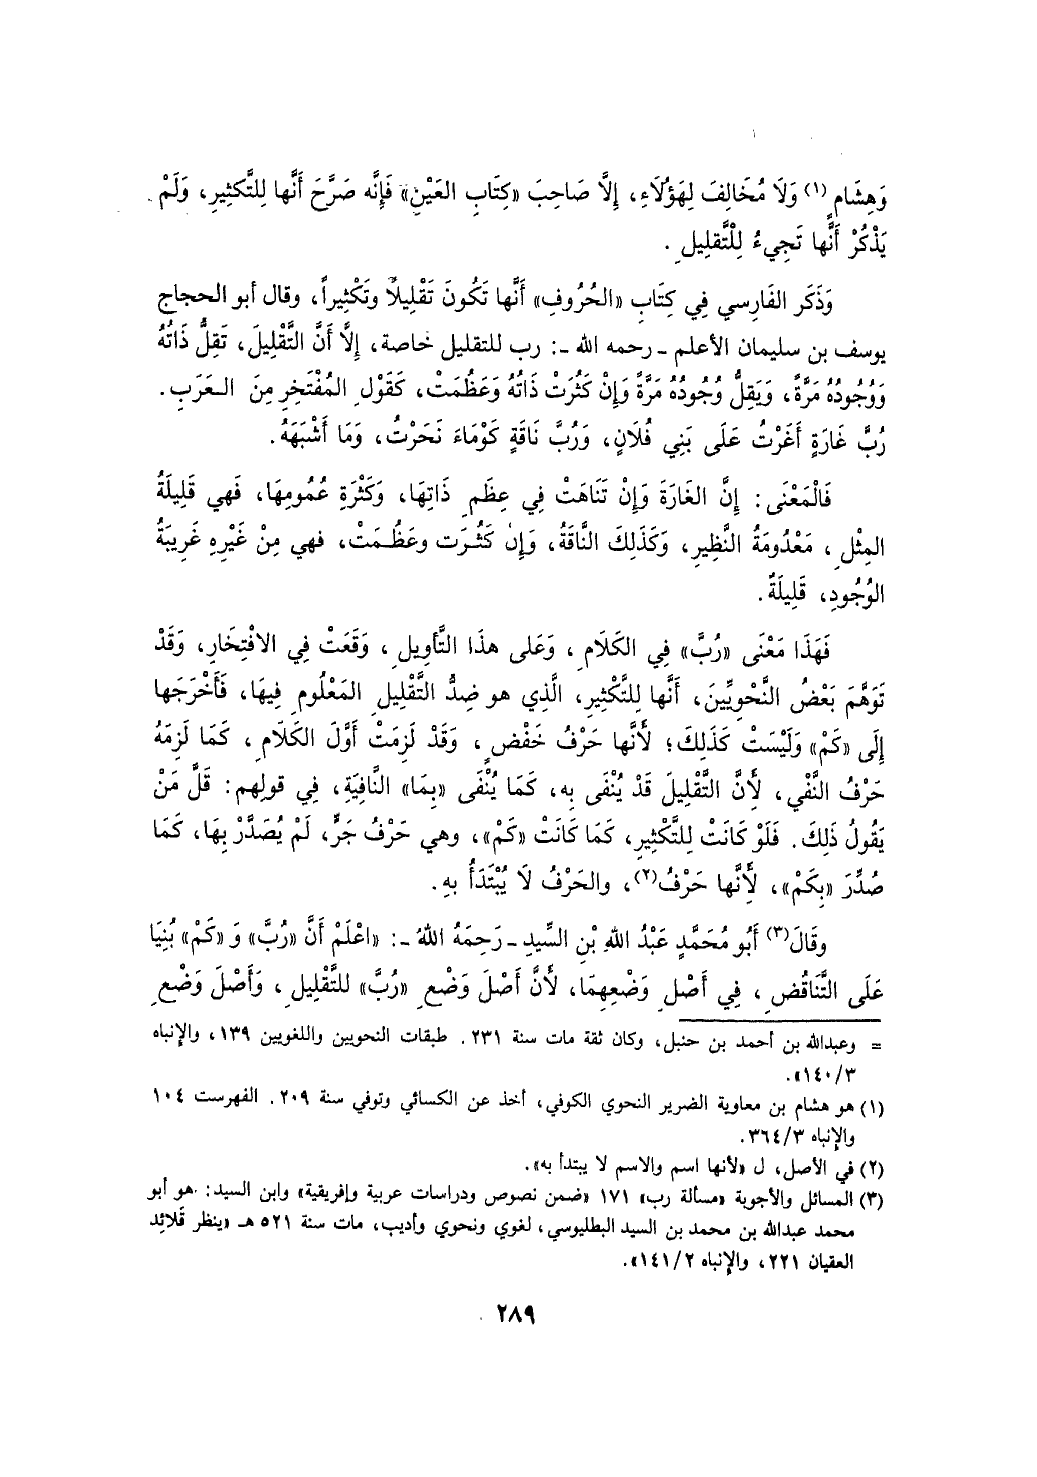 وَهِشَامٍ (١) وَلَا مُخَالِفَ لِهَؤُلَاءِ، إِلَّا صَاحِبَ «كِتَابِ العَيْنِ» فَإِنَّه صَرَّحَ أَنَّها لِلتَّكثِيرِ، وَلَمْ
يَذْكُرْ أَنَّها تَجِيءُ لِلْتَّقلِيلِ .
وَذَكَر الفَارِسي فِي كِتَابِ «الحُرُوفِ» أَنَّها تَكُونَ تَقْلِيلاً وتَكْثِيراً، وقال أبو الحجاج
يوسف بن سليمان الأعلم - رحمه الله -: رب للتقليل خاصة، إِلَّا أَنَّ التَّقْلِيلَ، تَقِلُّ ذَاتُهُ
وَوُجُودُهُ مَرَّةً، وَيَقِلُّ وُجُودُهُ مَرَّةً وَإِنْ كَثُرَتْ ذَاتُهُ وَعَظُمَتْ، كَقَوْلِ المُفْتَخِرِ مِنَ العَرَبِ.
رُبَّ غَارَةٍ أَغَرْتُ عَلَى بَنِي فُلَانٍ، وَرُبَّ نَاقَةٍ كَوْمَاءَ نَحَرْتُ، وَمَا أَشْبَهَهُ.
فَالْمَعْنَى: إِنَّ الغَارَةَ وَإِنْ تَنَاهَتْ فِي عِظَمِ ذَاتِهَا، وَكَثْرَةِ عُمُومِهَا، فَهي قَلِيلَةُ
المِثْلِ، مَعْدُومَةُ النَّظِيرِ، وَكَذَلِكَ النَّاقَةُ، وَإِنْ كَثُرَت وعَظُمَتْ، فهي مِنْ غَيْرِهِ غَرِيبَةُ
الوُجُودِ، قَلِيلَةٌ.
فَهَذَا مَعْنَى «رُبَّ» فِي الكَلَامِ، وَعَلى هذَا التَّأوِيلِ، وَقَعَتْ فِي الافْتِخَارِ، وَقَدْ
تَوَهَّمَ بَعْضُ النَّحْوِيِّينَ، أَنَّها لِلتَّكْثِيرِ، الَّذِي هو ضِدُّ التَّقْلِيلِ المَعْلُومِ فِيهَا، فَأَخْرَجَها
إِلَى «كَمْ» وَلَيْسَتْ كَذَلِكَ؛ لأَنَّها حَرْفُ خَفْضٍ، وَقَدْ لَزِمَتْ أَوَّلَ الكَلَامِ، كَمَا لَزِمَهُ
حَرْفُ النَّفْي، لأَنَّ التَّقْلِيلَ قَدْ يُنْفَى بِه، كَمَا يُنْفَى «بِمَا» النَّافِيَةِ، فِي قولِهم: قَلَّ مَنْ
يَقُولُ ذَلِكَ. فَلَوْ كَانَتْ لِلتَّكْثِيرِ، كَمَا كَانَتْ «كَمْ»، وهي حَرْفُ جَرٍّ، لَمْ يُصَدَّرْ بِهَا، كَمَا
صُدِّرَ «بِكَمْ»، لأَنَّها حَرْفُ(٢)، والحَرْفُ لَا يُبْتَدَأُ بِهِ.
وقَالَ(٣) أَبُو مُحَمَّدٍ عَبْدُ اللهِ بْنِ السِّيدِ - رَحِمَهُ اللهُ -: «اعْلَمْ أَنَّ «رُبَّ» وَ «كَمْ» بُنِيَا
عَلَى التَّنَاقُضِ، فِي أَصْلِ وَضْعِهِمَا، لأَنَّ أَصْلَ وَضْعِ «رُبَّ» للتَّقْلِيلِ، وَأَصْلَ وَضْعِ
= وعبدالله بن أحمد بن حنبل، وكان ثقة مات سنة ٢٣١. طبقات النحويين واللغويين ١٣٩، والإنباه
٣/١٤٠».
(١) هو هشام بن معاوية الضرير النحوي الكوفي، أخذ عن الكسائي وتوفي سنة ٢٠٩. الفهرست ١٠٤
والإنباه ٣/٣٦٤.
(٢) في الأصل، ل «لأنها اسم والاسم لا يبتدأ به».
(٣) المسائل والأجوبة «مسألة رب» ١٧١ «ضمن نصوص ودراسات عربية وإفريقية» وابن السيد: هو أبو
محمد عبدالله بن محمد بن السيد البطليوسي، لغوي ونحوي وأديب، مات سنة ٥٢١ هـ «ينظر قلائد
العقيان ٢٢١، والإنباه ٢/١٤١».
٢٨٩